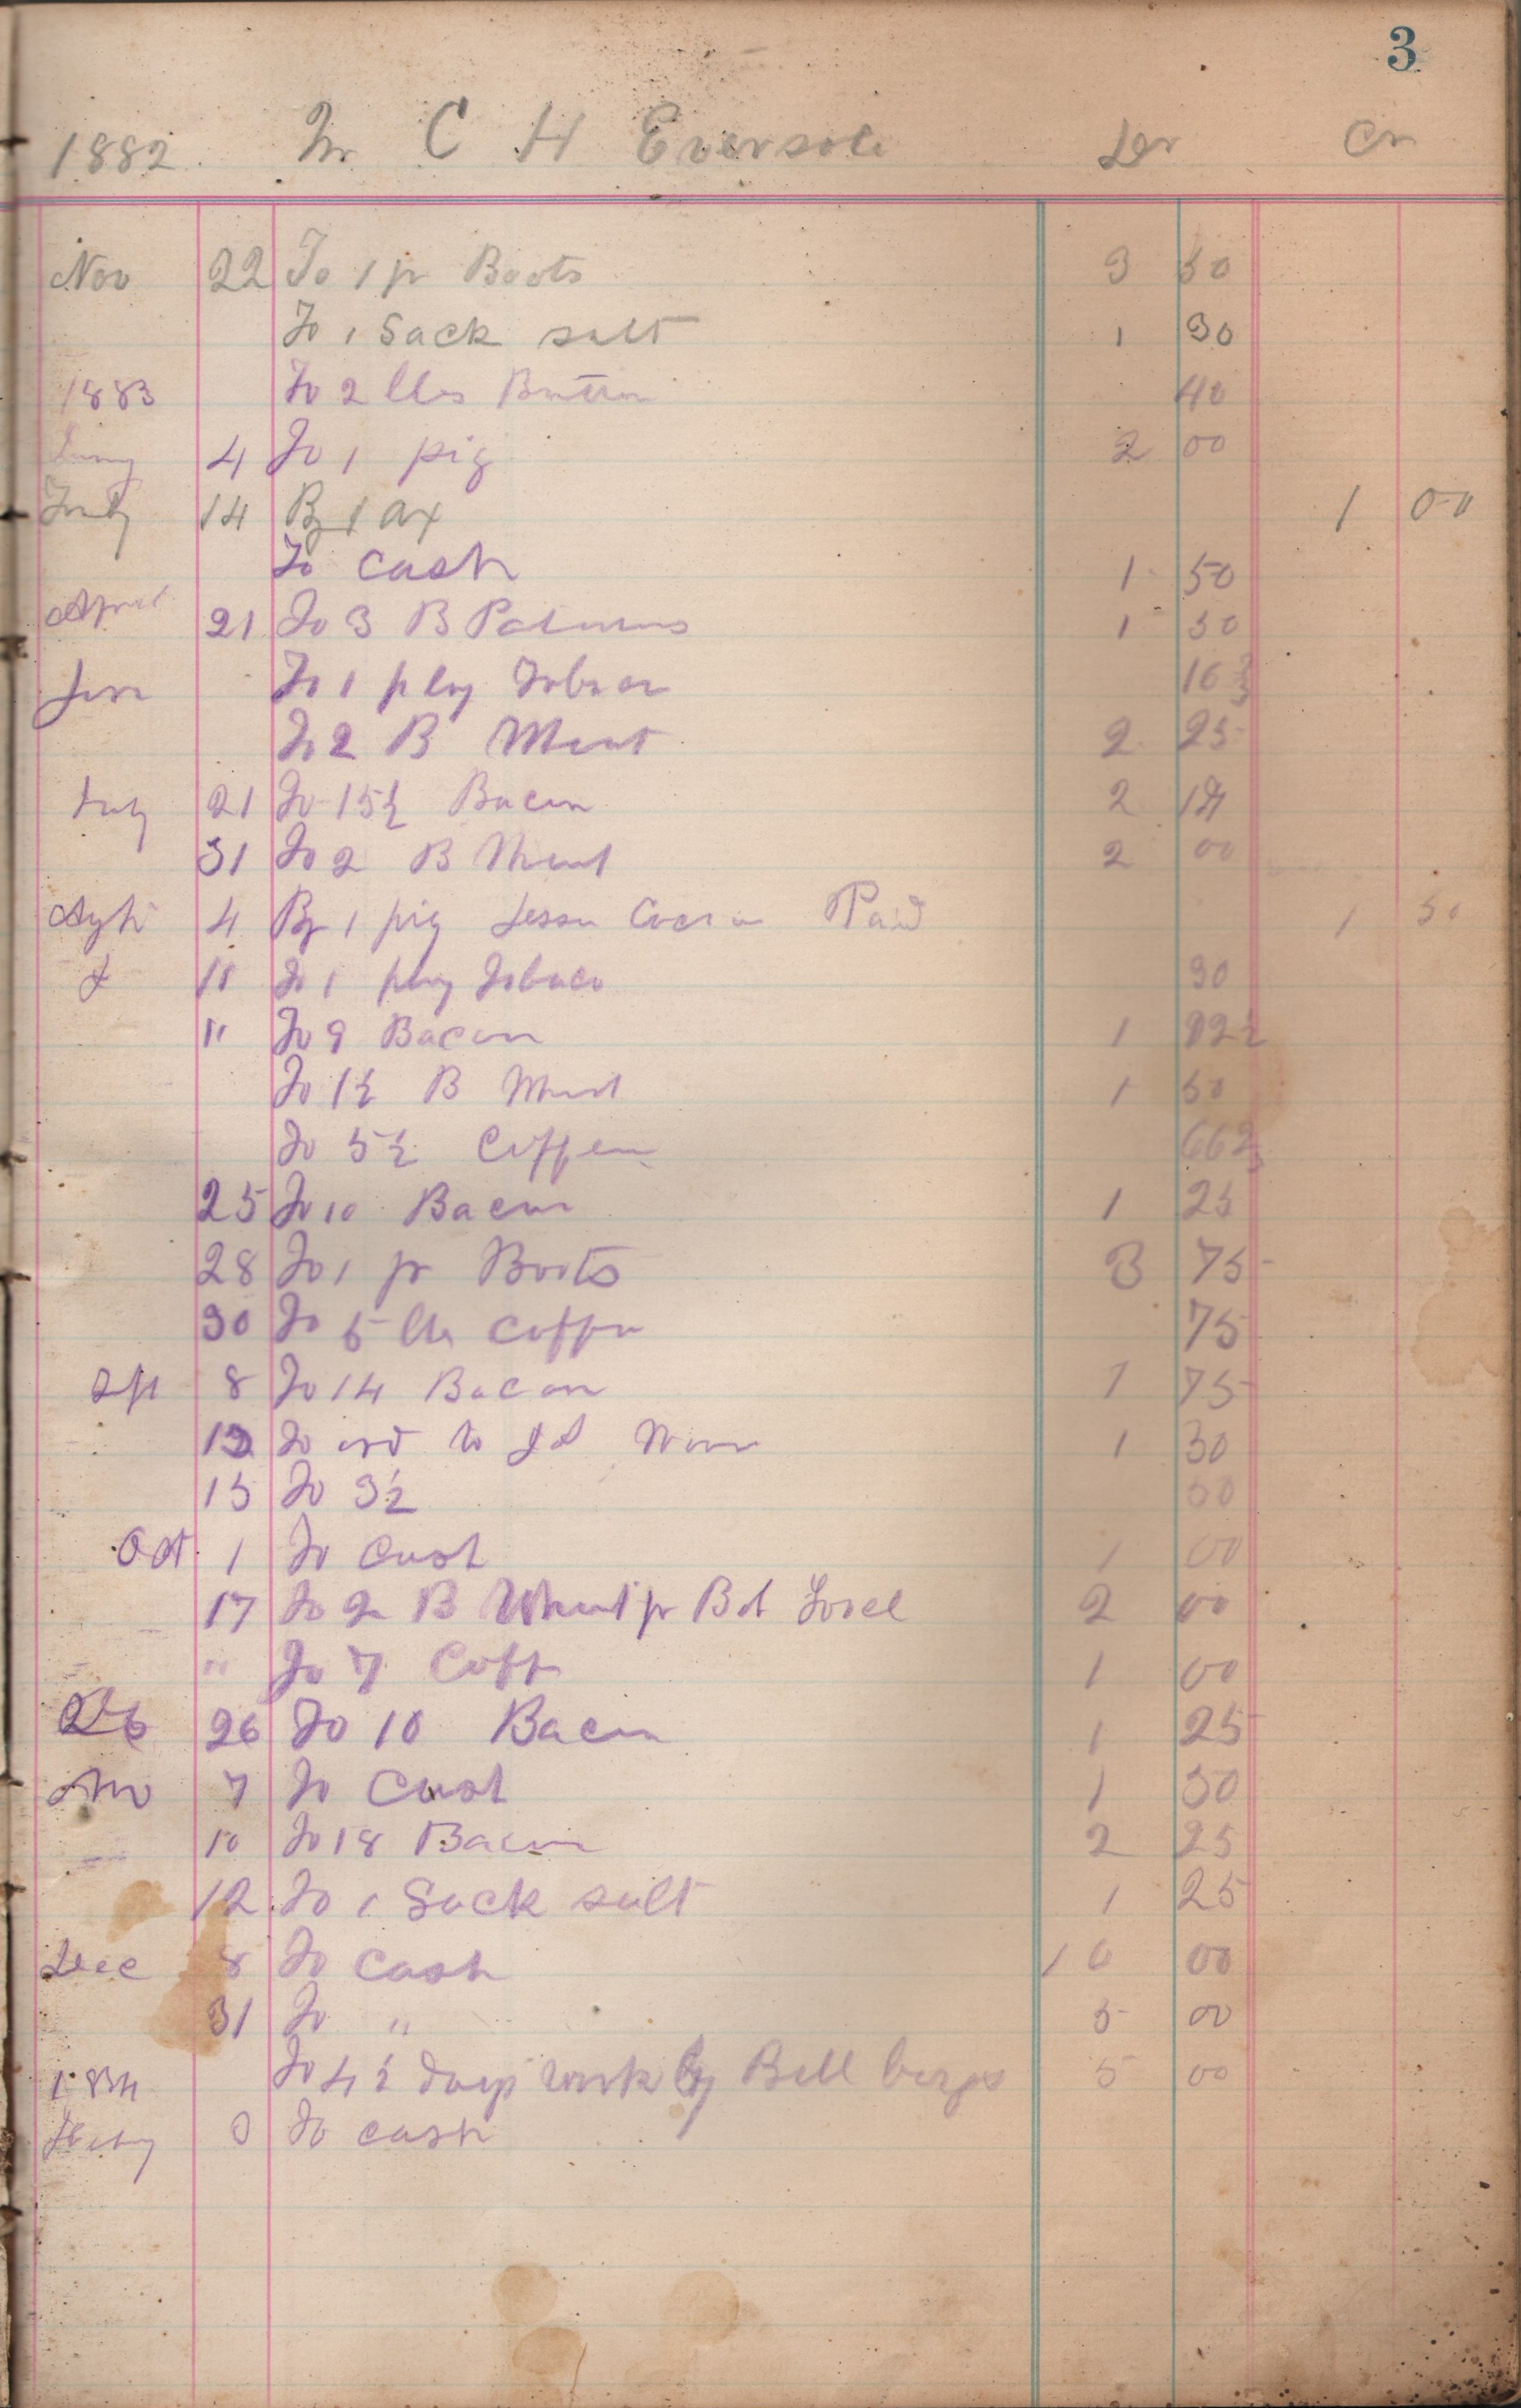 3
1882 Mr C H Eversole Dr Cr
Nov 22 To 1 pr Boots 3 50
To 1 Sack salt 1 30
1883 To 2 lbs Butter 40
4 To 1 pig 2 00
14 By 1 ax 1 00
To cash 1 50
April 21 To 3 B 1 50
June To 1 plug 16 2/3
To 2 B Meat 2 25
July 21 To 15½ Bacon 2 19
31 To 2 B Meat 2 00
4 By 1 pig Paid 1 50
11 To 1 plug Tobaco 30
" To 9 Bacon 1 12½
To 1½ B Meat 1 50
To 5½ Coffee 66 2/3
25 To 10 Bacon 1 25
28 To 1 pr Boots 3 75
30 To 5 lbs Coffe 75
Spt 8 To 14 Bacon 1 75
To ord to 1 30
15 To 3½ 50
Oct 1 To Cash 1 00
17 To 2 B pr 2 00
" To 7 Coff 1 00
26 To 10 Bacon 1 25
Nov 7 To Cash 1 50
10 To 18 Bacon 2 25
12 To 1 Sack salt 1 25
Dec 8 To Cash 10 00
31 To " 5 00
1884 To 4½ days work by Bell 5 00
To cash